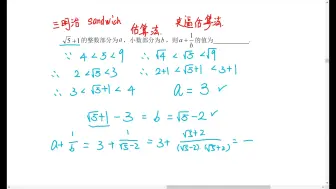 三明治 sandwich 估算法 夹逼估算法
√5+1的整数部分为a，小数部分为b，则a+1/b的值为________.
∵ 4<5<9 ∴ √4<√5<√9
∴ 2<√5<3 ∴ 2+1<√5+1<3+1
∴ 3<√5+1<4 a=3 ✓
√5+1-3=b=√5-2 ✓
a+1/b=3+1/(√5-2)=3+(√5+2)/((√5-2)(√5+2))=—